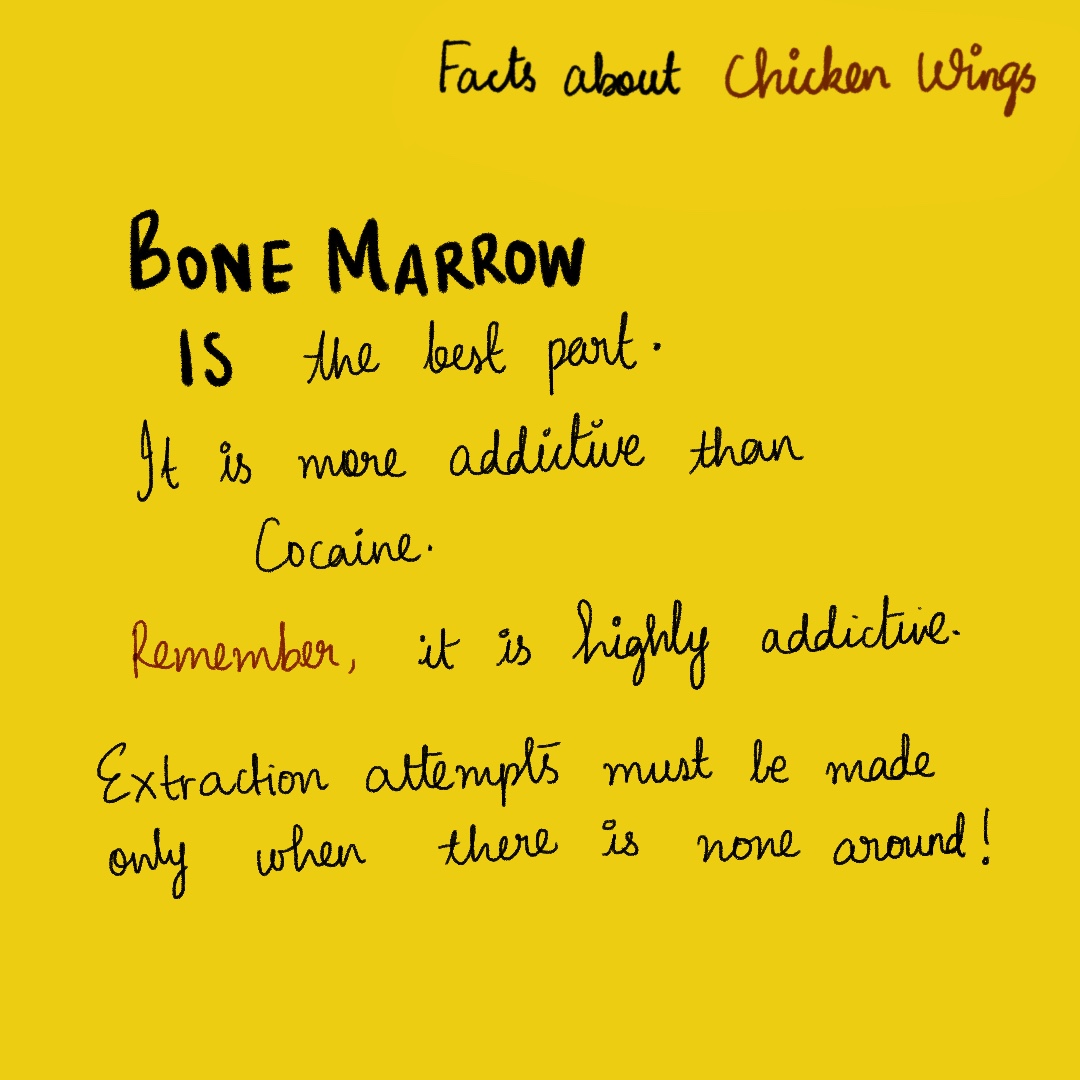 Facts about Chicken Wings
BONE MARROW
IS the best part.
It is more addictive than
Cocaine.
Remember, it is highly addictive.
Extraction attempts must be made
only when there is none around!